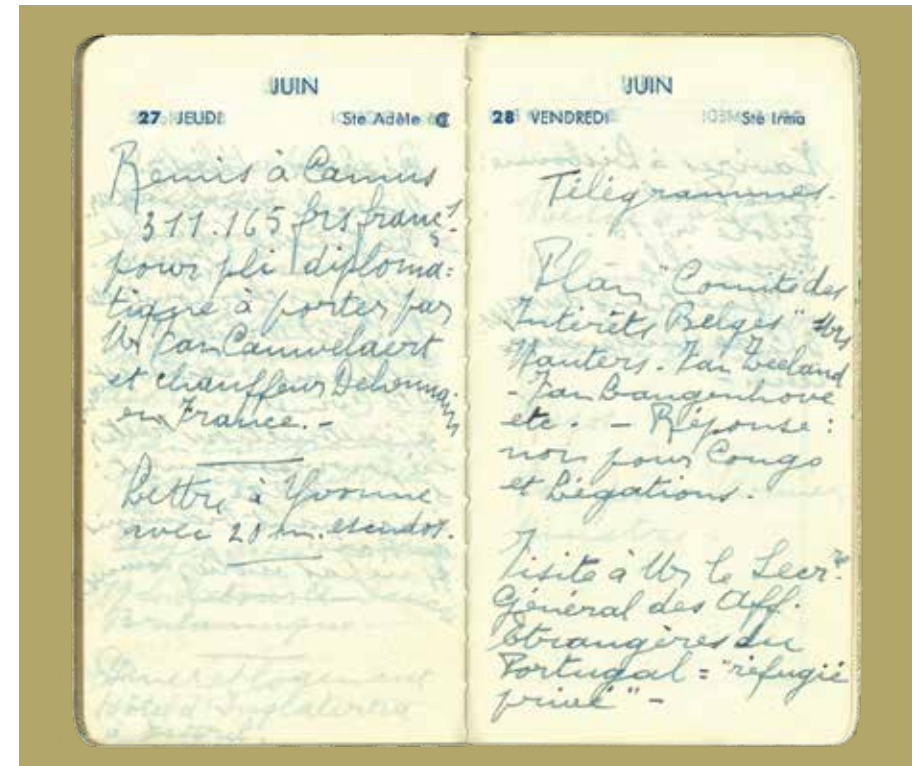 JUIN
27 JEUDI Ste Adèle
Remis à Camus
311.165 frs franç.s
pour pli diploma=
tique à porter par
Mr Van Cauwelaert
et chauffeur
en France. -
Lettre à Yvonne
avec 20 m. escudos.
JUIN
28 VENDREDI Ste Irma
Télégrammes.
Plan "Comité des
Intérêts Belges" Mrs
Wauters. Van Zeeland
- Van Langenhove
etc. - Réponse :
non pour Congo
et Légations.
Visite à Mr le Secr.re
Général des Aff.
Etrangères du
Portugal = "réfugié
privé" -